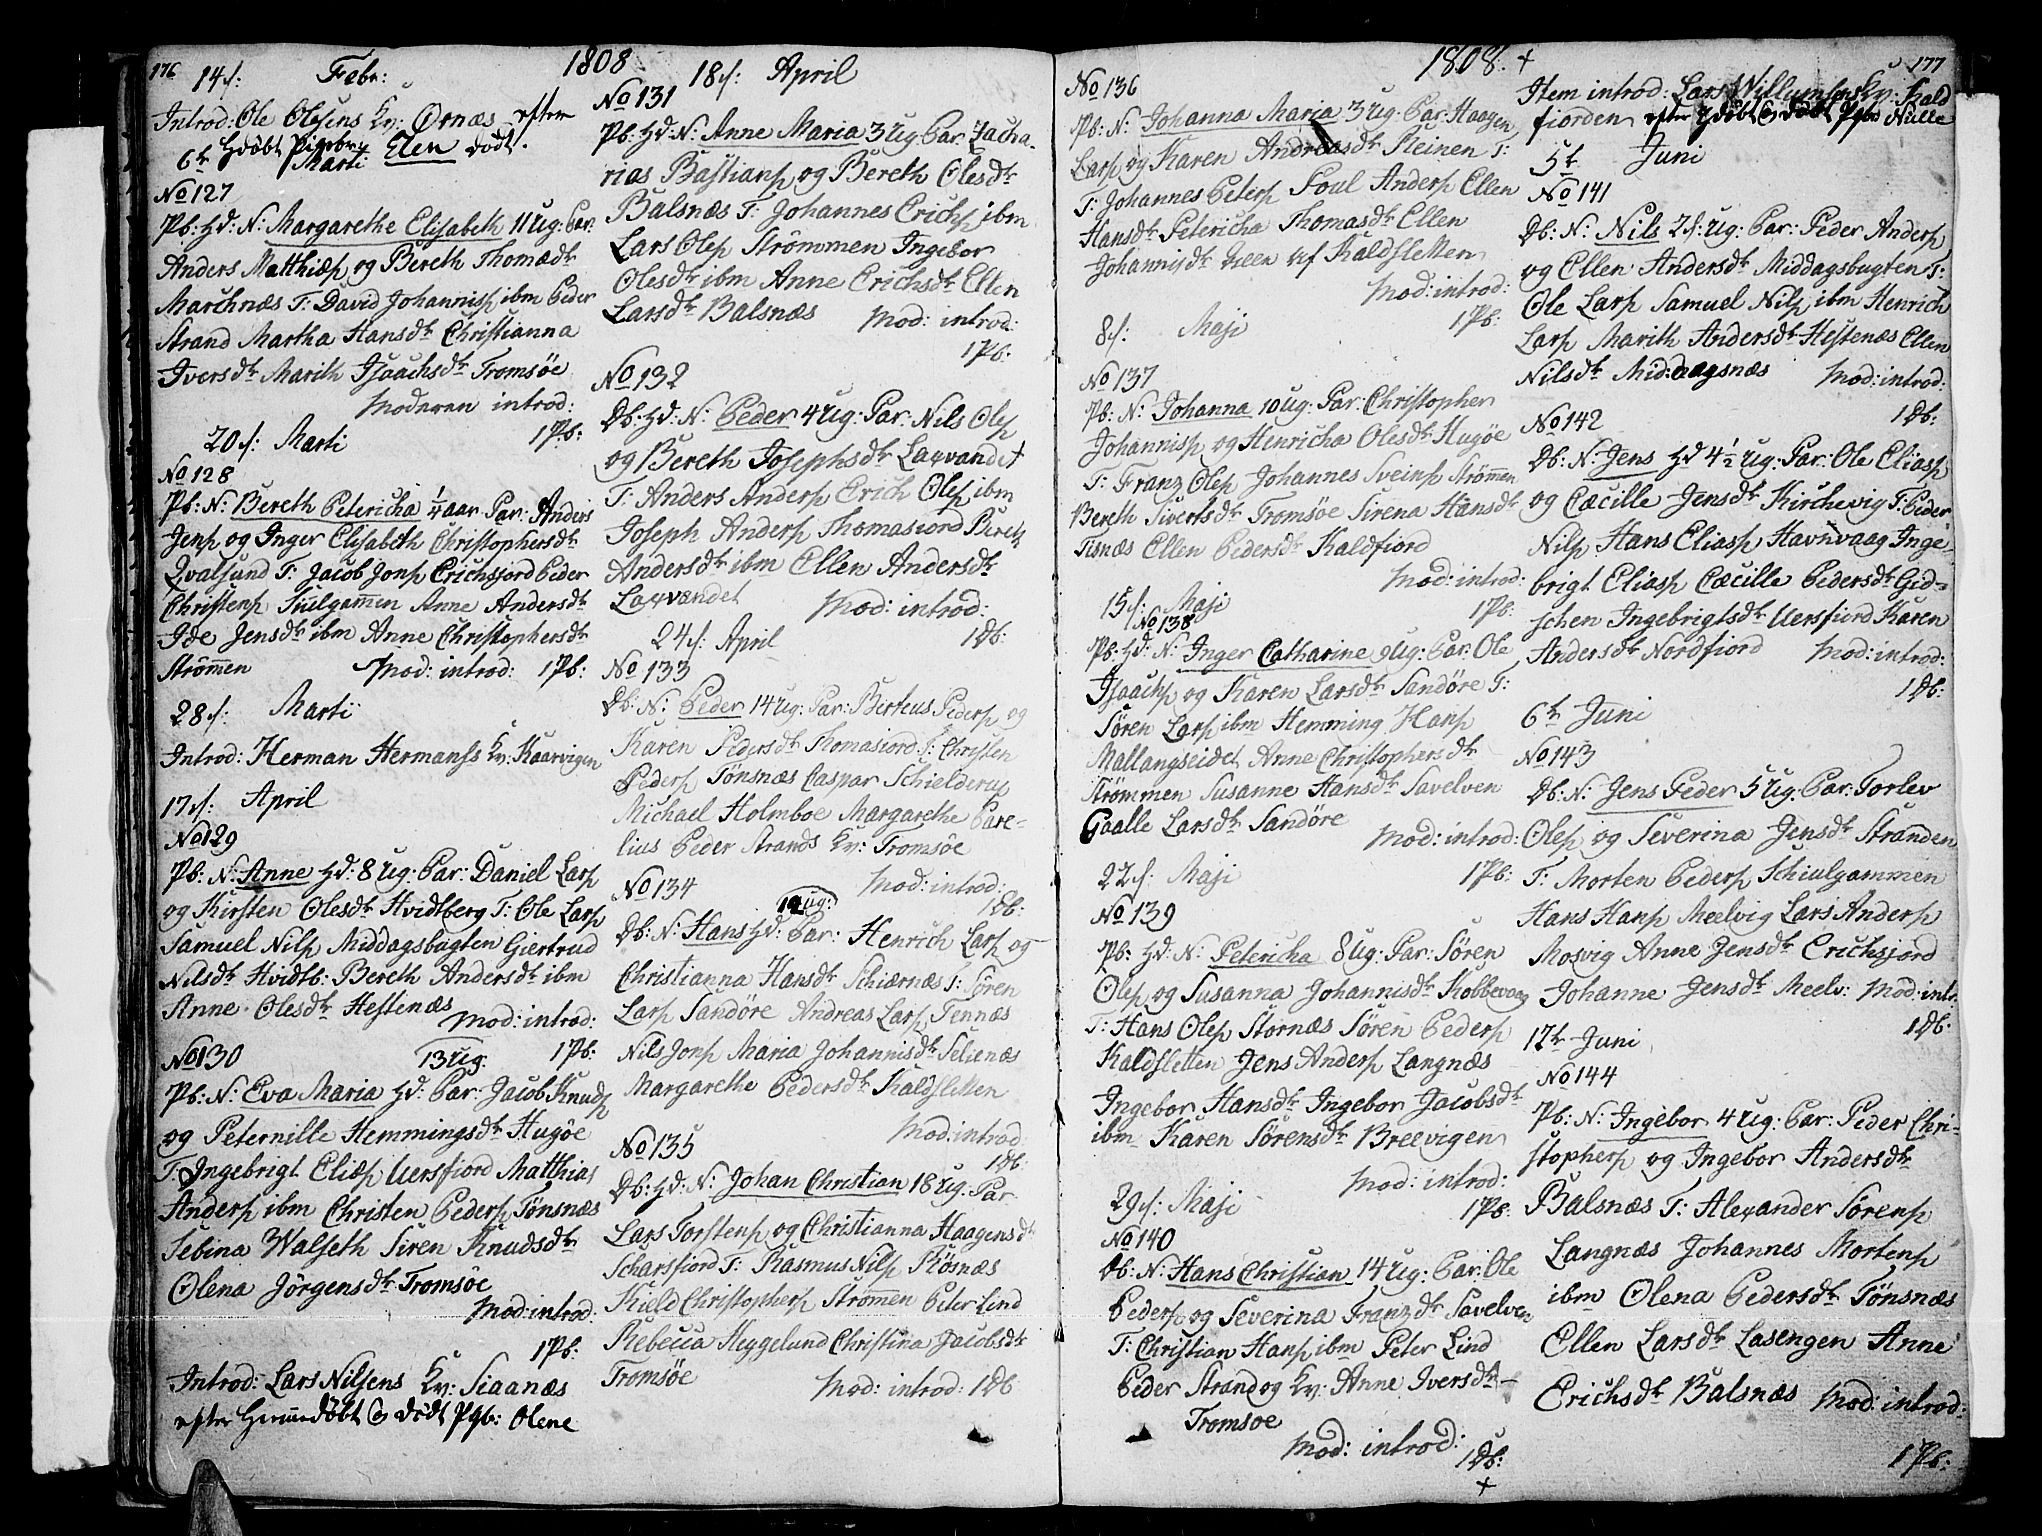 176
1808
14/: Febr:
Introd: Ole Olesens Kv: Ornæs efter
Hdøbt Pigebr: Elen død.
6te Marti
No 127
Pb: Hd: N: Margarethe Elisabeth 11 Ug: Par:
Anders Matthisp og Bereth Thomædtr
Marchnæs T: David Johannisp ibm Peder
Strand Martha Hansdtr Christianna
Iversdtr Marith Isaachsdtr Tromsöe
Moderen introd:
1 Pb:
20/: Marti
No 128
Pb: N: Bereth Petericha 1/4 aar Par: Anders
Jensp og Inger Elisabeth Christophersdtr
Qvalsund T: Jacob Jonsp Erichsfiord Peder
Christensp Siulgammen Anne Andersdtr
Ide Jensdtr ibm Anne Christophersdtr
Strömmen Mod: introd: 1 Pb:
28/: Marti
Introd: Herman Hermanss Kv: Kaarvigen
17/: April
No 129
Pb: N: Anne Hd: 8 Ug: Par: Daniel Larsp
og Kirsten Olesdtr Hvidtberg T: Ole Larsp
Samuel Nilsp Middagsbugten Giertrud
Nilsdtr Hvidtb: Bereth Andersdtr ibm
Anne Olesdtr Hestenæs
Mod: introd:
1 Pb:
No 130 13 Ug:
Pb: N: Eva Maria Hd: Par: Jacob Knudsp
og Peternille Hemmingsdtr Hugöe
T: Ingebrigt Eliæsp Uersfiord Matthias
Andersp ibm Christen Pedersp Tönsnæs
Sebina Walseth Siren Knudsdtr
Olena Jörgensdtr Tromsöe
Mod: introd:
1 Pb:
Introd: Lars Nilsens Kv: Siaanæs
efter Hjemmedöbt & dödt Pgb: Olene
18/: April
No 131
Pb: Hd: N: Anne Maria 3 Ug: Par: Zacha-
rias Bastiansp og Bereth Olesdtr
Balsnæs T: Johannes Erichsp ibm
Lars Olesp Strömmen Ingebor
Olesdtr ibm Anne Erichsdtr Ellen
Larsdtr Balsnæs Mod: introd:
1 Pb:
No 132
Db: Hd: N: Peder 4 Ug: Par: Nils Olesp
og Bereth Josephsdtr Laxvandet
T: Anders Andersp Erich Olesp ibm
Joseph Andersp Thomasiord Bereth
Andersdtr ibm Ellen Andersdtr
Laxvandet Mod: introd:
1 Db:
24/: April
No 133
Db: N: Peder 14 Ug: Par: Berteus Pedersp og
Karen Pedersdtr Thomasiord T: Christen
Pedersp Tönsnæs Caspar Schielderup
Michael Holmboe Margarethe Pare-
lius Peder Strands Kv: Tromsöe
Mod: introd:
1 Db:
No 134 19 Ug:
Db: N: Hans Hd: Par: Henrich Larsp og
Christianna Hansdtr Schiærnæs T: Sören
Larsp Sandöre Andreas Larsp Tennæs
Nils Jonsp Maria Johannisdtr Selienæs
Margarethe Pedersdtr Kaldsletten
Mod: introd:
1 Db:
No 135
Db: Hd: N: Johan Christian 18 Ug: Par
Lars Torstensp og Christianna Haagensdtr
Scharsfiord T: Rasmus Nilsp Rösnæs
Kield Christophersp Strömmen Peter Lind
Rebecca Heggelund Christina Jacobsdtr
Tromsöe
Mod: introd: 1 Db
1808. +
177
No 136
Pb: N: Johanna Maria 3 Ug: Par: Haagen
Larsp og Karen Andreasdtr Steinen T:
T: Johannes Petersp Poul Andersp Ellen
Hansdtr Petericha Thomasdtr Ellen
Johannisdtr alle af Kaldsletten
Mod: introd:
1 Pb:
8/: Maji
No 137
Pb: N: Johanna 10 Ug: Par: Christopher
Johannisp og Henricha Olesdtr Hugöe
T: Franz Olesp Johannes Sveinsp Strömmen
Bereth Sivertsdtr Tromsöe Sirena Hansdtr
Tisnæs Ellen Pedersdtr Kaldfiord
Mod: introd:
1 Pb:
15/: Maji
No 138
Pb: Hd: N: Inger Catharine 9 Ug: Par: Ole
Isaachsp og Karen Larsdtr Sandöre T:
Sören Larsp ibm Hemming Hansp
Mallangseidet Anne Christophersdtr
Strömmen Susanne Hansdtr Savelven
Gaalle Larsdtr Sandöre
Mod: introd:
1 Pb:
22/: Maji
No 139
Pb: Hd: N: Petericha 8 Ug: Par: Sören
Olesp og Susanna Johannisdtr Kobbevaag
T: Hans Olesp Stornæs Sören Pedersp
Kaldsletten Jens Andersp Langnæs
Ingebor Hansdtr Ingebor Jacobsdtr
ibm Karen Sörensdtr Breevigen
Mod: introd:
1 Pb:
29/: Maji
No 140
Db: N: Hans Christian 14 Ug: Par: Ole
Pedersp og Severina Franzdtr Savelven
T: Christian Hansp ibm Peter Lind
Peder Strand og Kv: Anne Iversdtr
Tromsöe
Mod: introd:
1 Db:
+
Item introd: Lars Willumsens Kv: Kald
fiorden efter Hdöbt & dödt Pgb Nille
5te Juni
No 141
Db: N: Nils 2/: Ug: Par: Peder Andersp
og Ellen Andersdtr Middagsbugten T:
Ole Larsp Samuel Nilsp ibm Henrich
Larsp Marith Andersdtr Hestenæs Ellen
Nilsdtr Middagsnæs Mod: introd:
1 Db:
No 142
Db: N: Jens Hd 4 1/2 Ug: Par: Ole Eliasp
og Cæcille Jensdtr Kirchevig T: Peder
Nilsp Hans Eliasp Havnvaag Inge-
brigt Eliasp Cæcille Pedersdtr Gid-
schen Ingebrigtsdtr Uersfiord Karen
Andersdtr Nordfiord Mod: introd:
1 Db:
6te Juni
No 143
Db: N: Jens Peder 5 Ug: Par: Torlev
Olesp og Severina Jensdtr Stranden
T: Morten Pedersp Schiulgammen
Hans Hansp Meelvig Lars Andersp
Mosvig Anne Jensdtr Erichsfiord
Johanne Jensdtr Meelv: Mod: intr.
1 Db:
12te Juni
No 144
Pb: N: Ingebor 4 Ug: Par: Peder Chri-
stophersp og Ingebor Andersdtr
Balsnæs T: Alexander Sörensp
Langnæs Johannes Mortensp
ibm Olena Pedersdtr Tönsnæs
Ellen Larsdtr Lasengen Anne
Erichsdtr Balsnæs Mod: introd:
1 Pb: